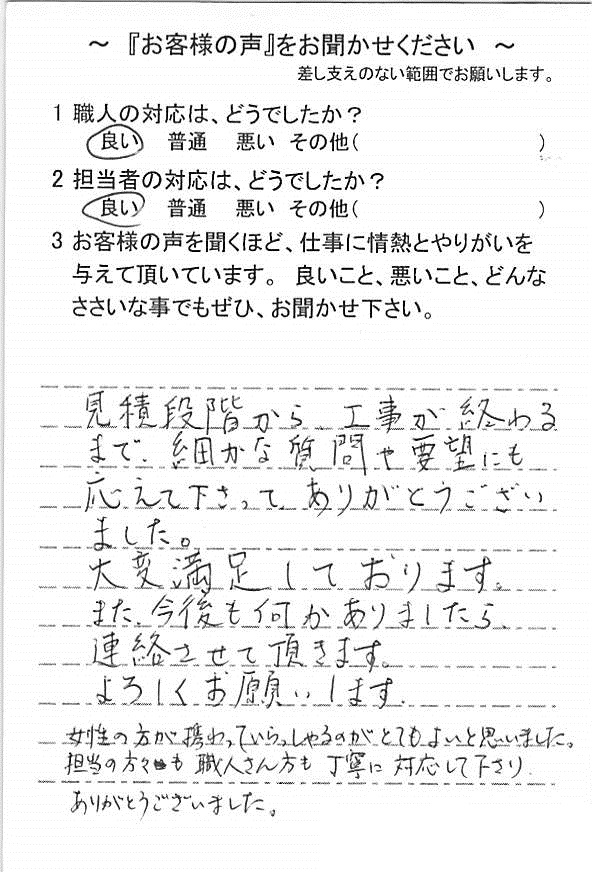 ～ 『お客様の声』をお聞かせください ～
差し支えのない範囲でお願いします。
1 職人の対応は、どうでしたか？
良い 普通 悪い その他( )
2 担当者の対応は、どうでしたか？
良い 普通 悪い その他( )
3 お客様の声を聞くほど、仕事に情熱とやりがいを
与えて頂いています。 良いこと、悪いこと、どんな
ささいな事でもぜひ、お聞かせ下さい。
見積段階から、工事が終わる
まで、細かな質問や要望にも
応えて下さって、ありがとうござい
ました。
大変満足しております。
また、今後も何かありましたら、
連絡させて頂きます。
よろしくお願いします.
女性の方が携わっていらっしゃるのがとてもよいと思いました。
担当の方々も職人さん方も丁寧に対応して下さり、
ありがとうございました。